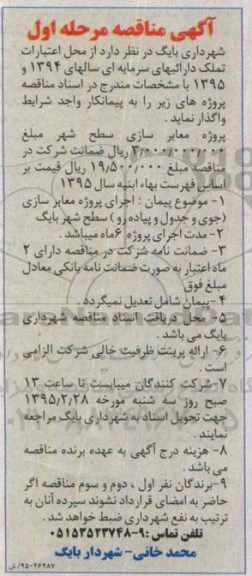 آگهی مناقصه مرحله اول
شهرداری بایگ در نظر دارد از محل اعتبارات
تملک دارائیهای سرمایه ای سالهای ۱۳۹۴ و
۱۳۹۵ با مشخصات مندرج در اسناد مناقصه
پروژه های زیر را به پیمانکار واجد شرایط
واگذار نماید.
پروژه معابر سازی سطح شهر مبلغ
۳/۰۰۰/۰۰۰/۰۰۰ ریال ضمانت شرکت در
مناقصه مبلغ ۱۹/۵۰۰/۰۰۰ ریال قیمت بر
اساس فهرست بهاء ابنیه سال ۱۳۹۵
۱- موضوع پیمان : اجرای پروژه معابر سازی
(جوی و جدول و پیاده رو) سطح شهر بایگ
۲- مدت اجرای پروژه ۶ ماه میباشد.
۳- ضمانت نامه شرکت در مناقصه دارای ۲
ماه اعتبار به صورت ضمانت نامه بانکی معادل
مبلغ فوق
۴- پیمان شامل تعدیل نمیگردد
۵- محل دریافت اسناد مناقصه شهرداری
بایگ می باشد.
۶- ارائه پرینت ظرفیت خالی شرکت الزامی
است.
۷- شرکت کنندگان میبایست تا ساعت ۱۳
صبح روز سه شنبه مورخه ۱۳۹۵/۲/۲۸
جهت تحویل اسناد به شهرداری بایگ مراجعه
نمایند.
۸- هزینه درج آگهی به عهده برنده مناقصه
می باشد.
۹- برندگان نفر اول ، دوم و سوم مناقصه اگر
حاضر به امضای قرارداد نشوند سپرده آنان به
ترتیب به نفع شهرداری ضبط خواهد شد.
تلفن تماس : ۹-۰۵۱۵۳۵۲۳۷۴۸
محمد خانی - شهردار بایگ
۹۵۰۲۶۴۸۷/ش